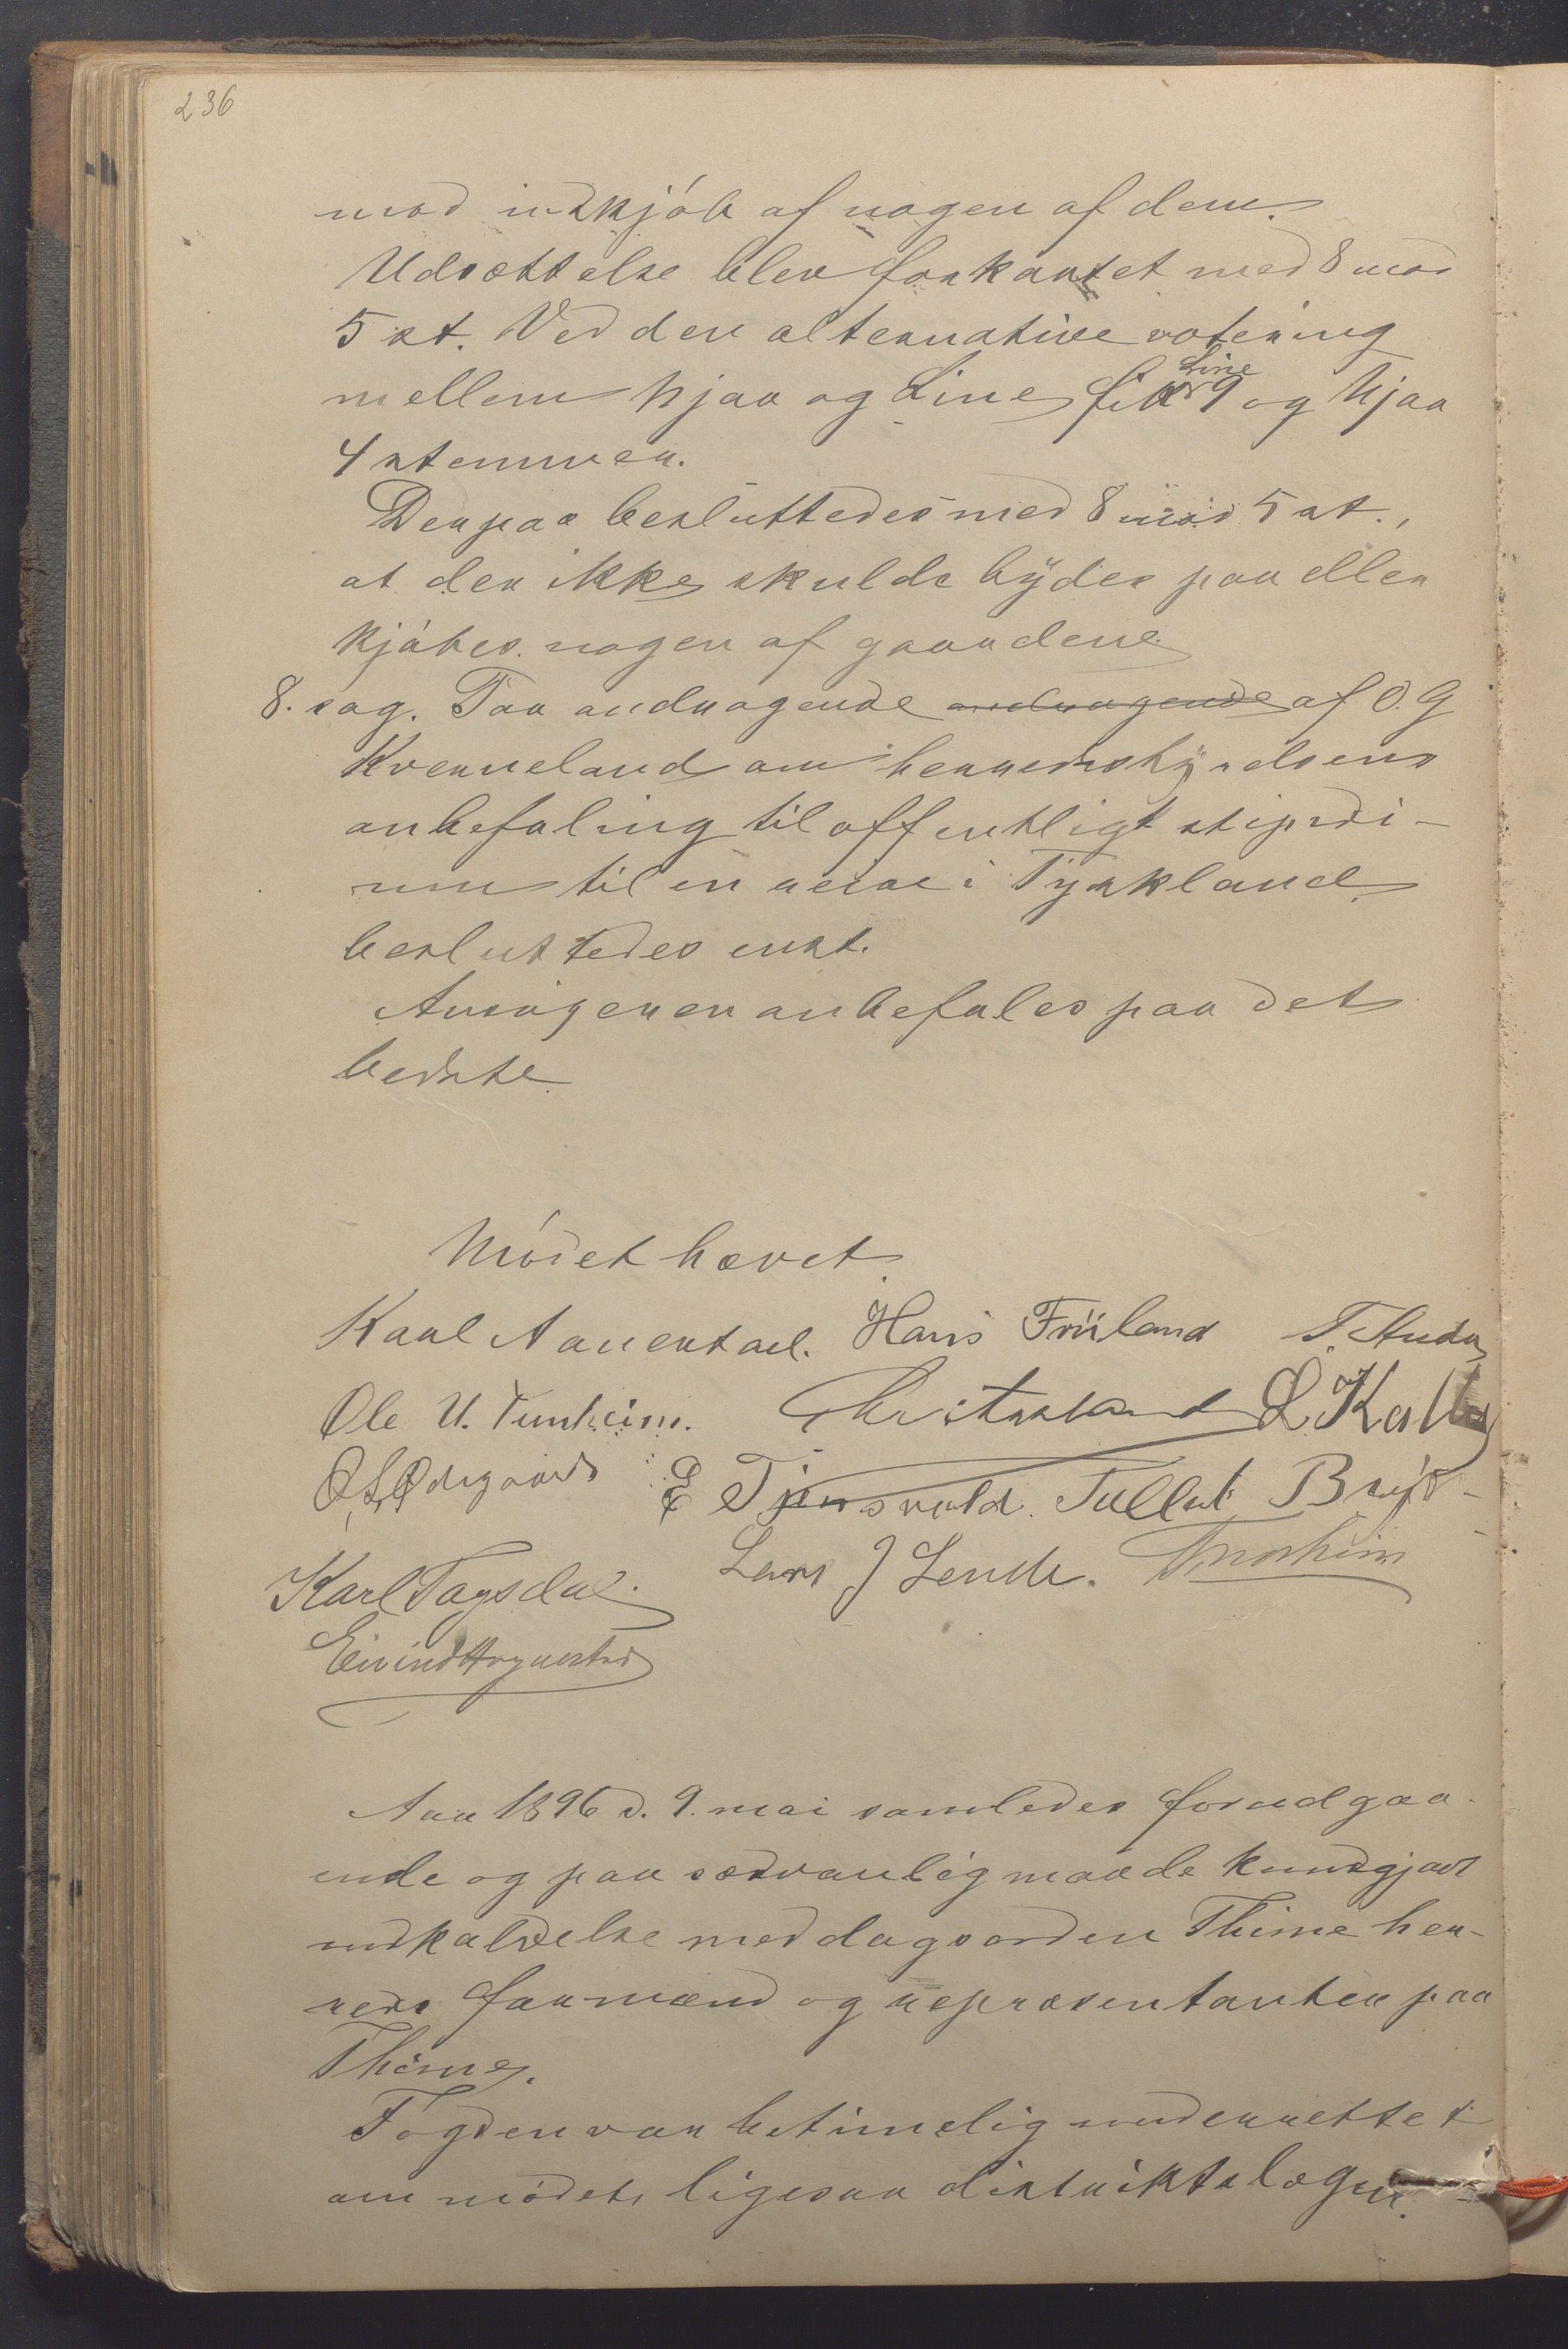 236
mod indkjøb af nogen af dem.
Udsættelse blev forkastet med 8 mod
5 st. Ved den alternative votering
mellem Njaa og Line fik Line 9 og Njaa
4 stemmer.
Derpaa besluttedes med 8 mod 5 st.,
at der ikke skulde bydes paa eller
kjøbes nogen af gaardene.
8. sag. Paa andragende andragende af O. G
Kverneland om herredsstyrelsens
anbefaling til offentligt stipendi-
um til en reise i Tyskland
besluttedes enst.
Ansøgeren anbefales paa det
bedste.
Mødet hævet.
Karl Aanestad. Hans Friiland T.
Ole U. Tunheim. L Kalb
O S Ødegaard E Tjensvold. Tollak Brÿt-
Karl Fagsdal. Lars J Lende.
Eivind Hognestad
Aar 1896 d. 9. mai samledes forudgaa-
ende og paa sædvanlig maade kundgjort
indkaldelse med dagsorden Thime her-
reds formænd og repræsentanter paa
Thime.
Fogden var betimelig underrettet
om mødet, ligesaa distriktslægen.